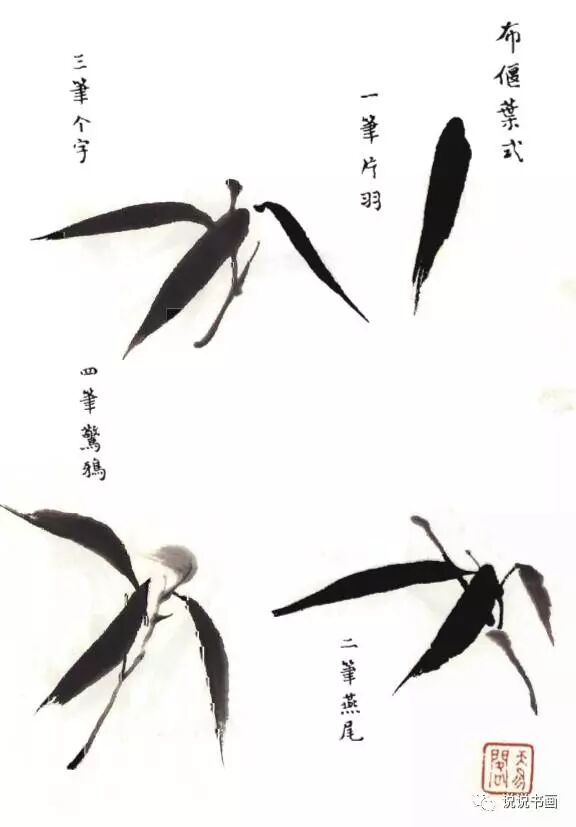 布偃葉式
一筆片羽
三筆个字
四筆驚鴉
二筆燕尾
说说书画